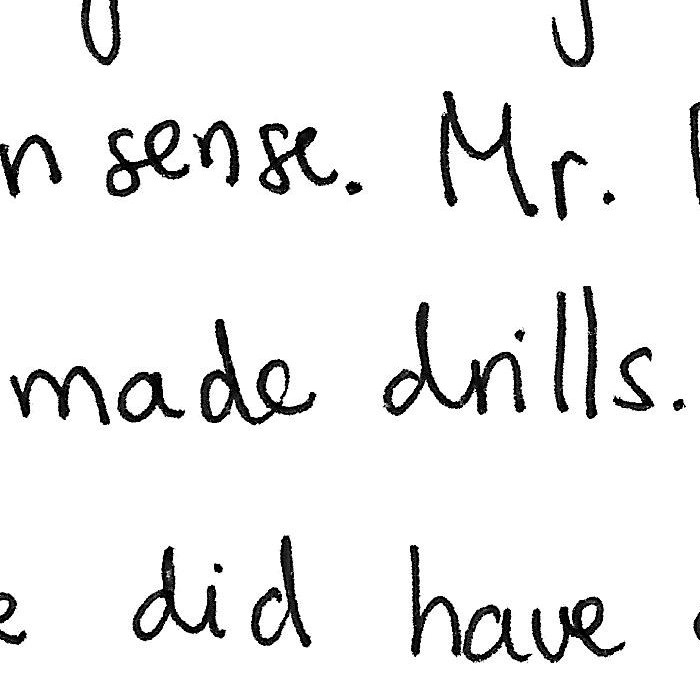 n sense. Mr.
made drills.
e did have